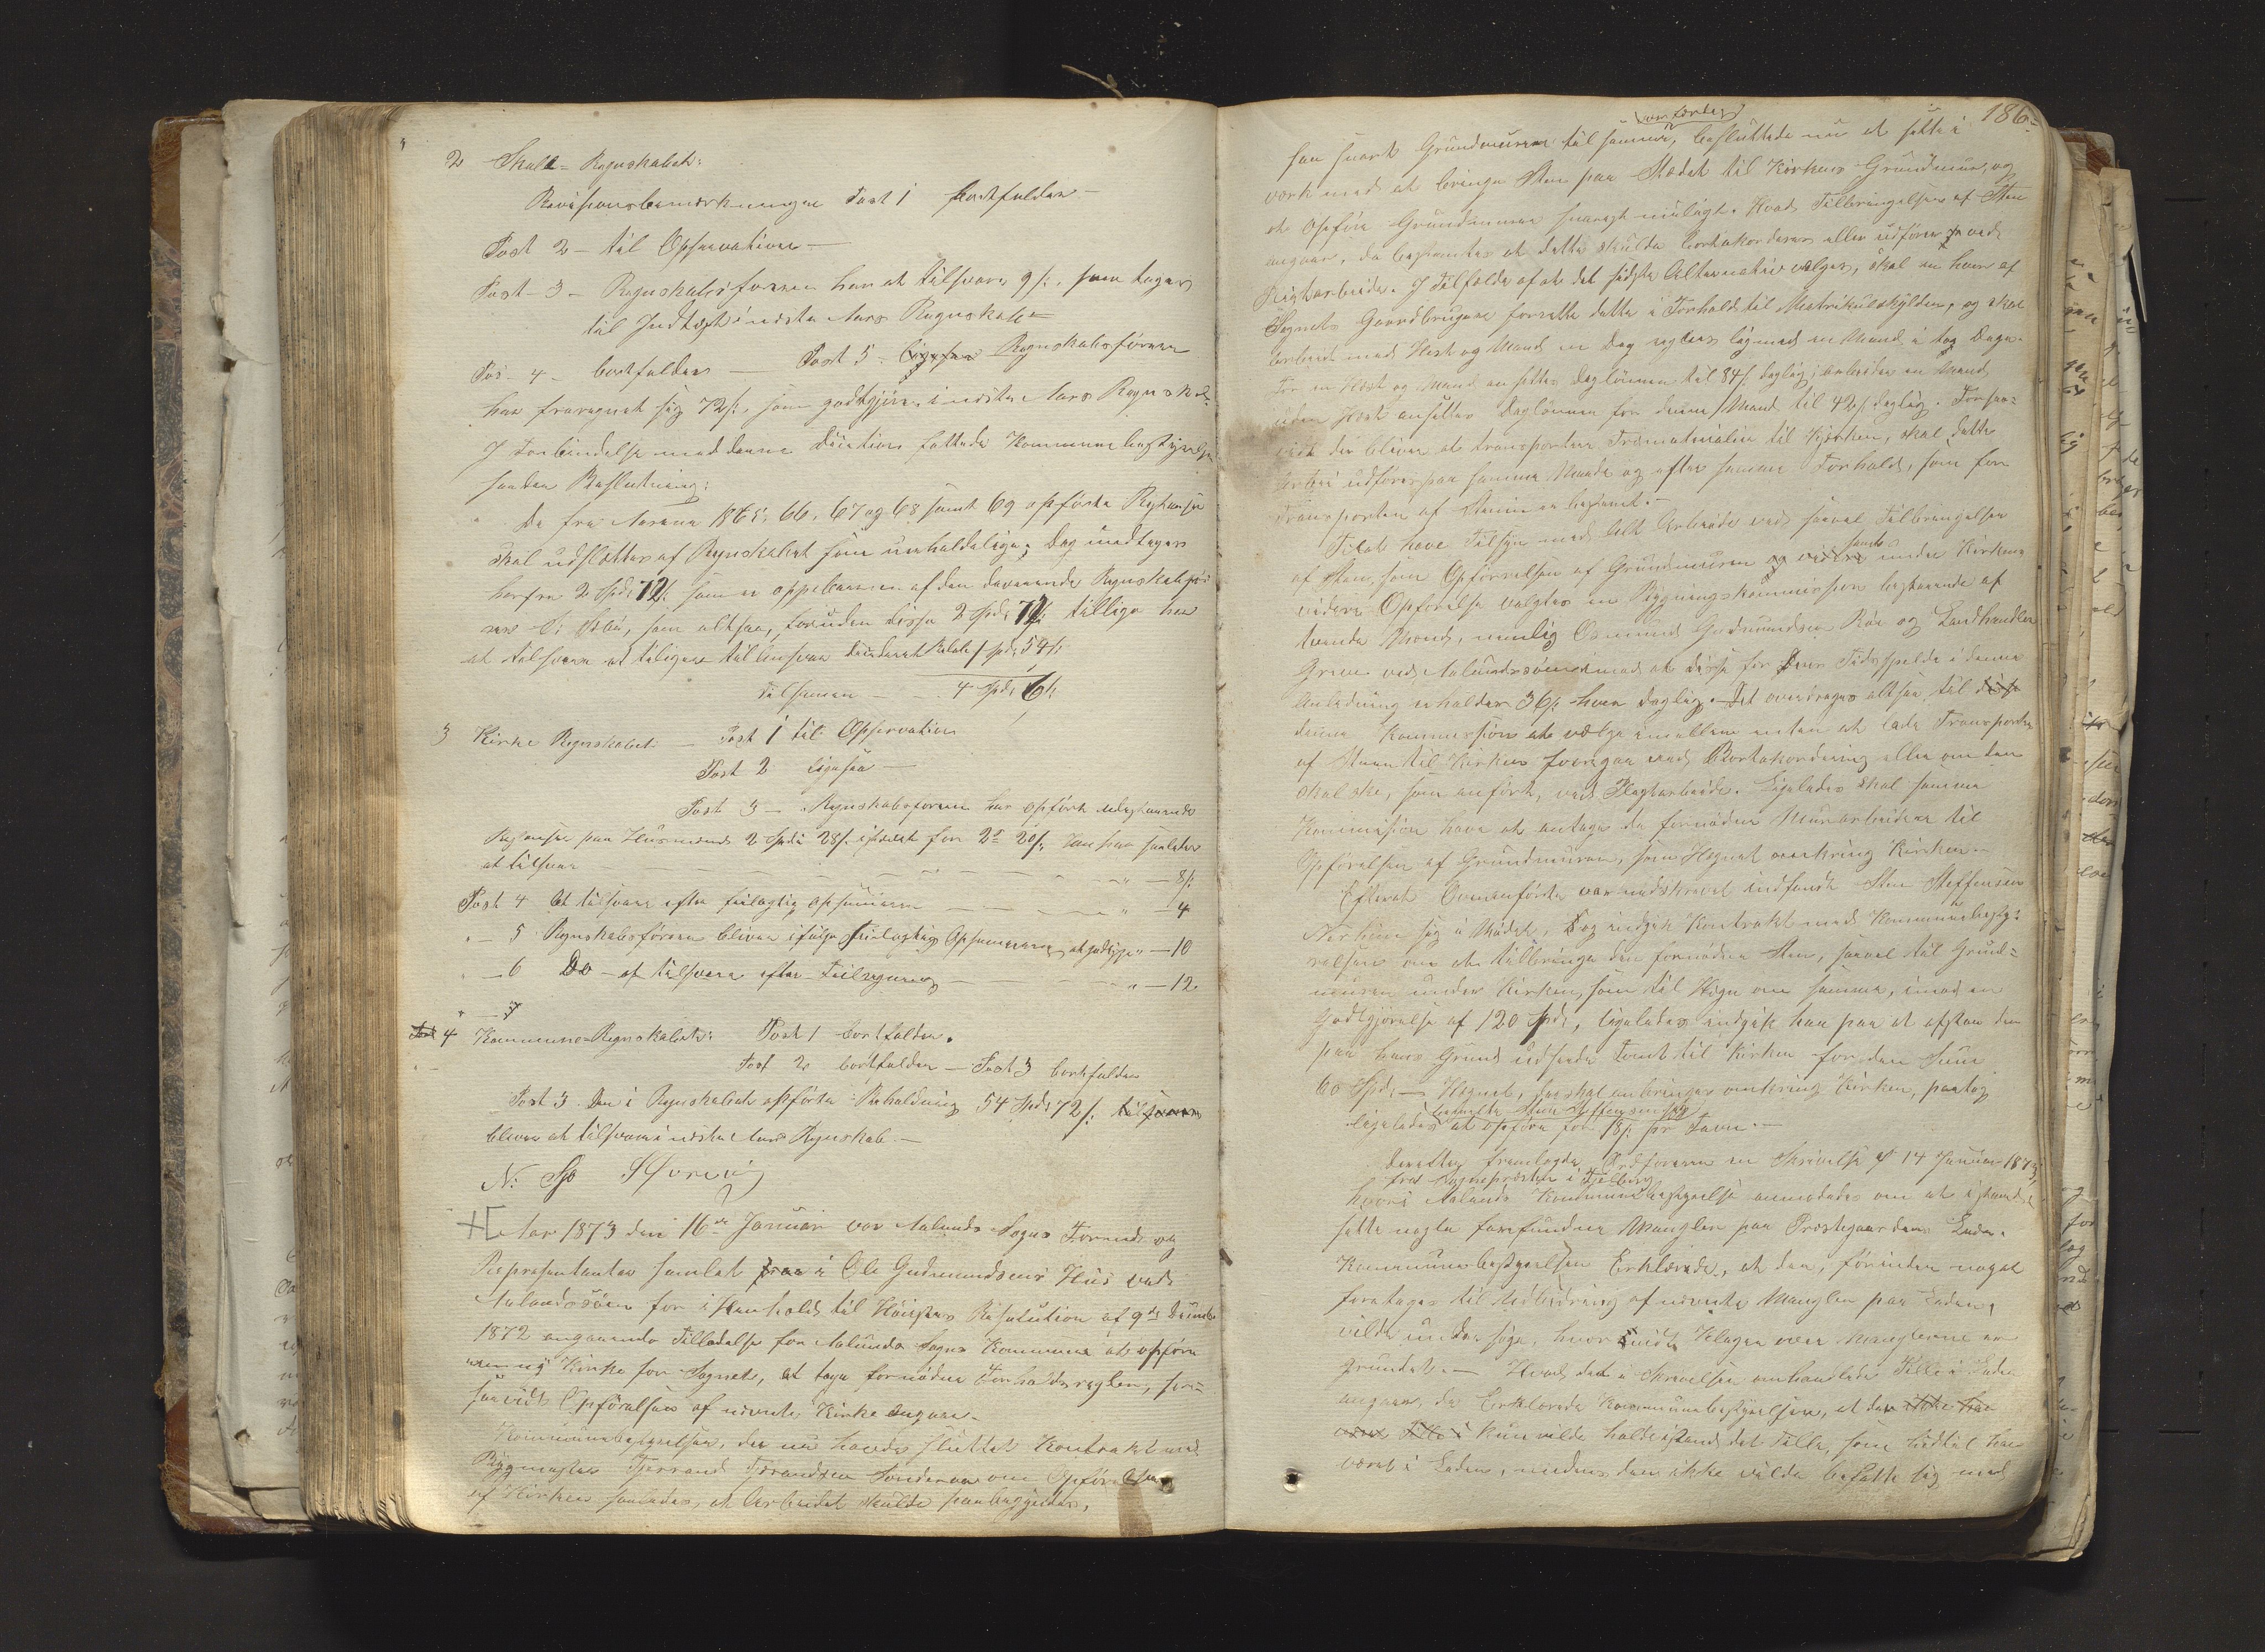 2 Skole-Regnskabet:
Revisionsbemærkningen Post 1 bortfalder –
Post 2 – til Observation –
Post – 3 – Regnskabsføreren har at tilsvare 9 s. som tages
til Indtægt i næste Aars Regnskab –
Pos – 4 – bortfalder – Post 5 – ligesaa Regnskabsføreren
har fraregnet sig 72 s. som godtgjøres i næste Aars Regnskab.
I Forbindelse med denne Desition fattede Kommunebestyrelsen
saadan Beslutning:
De fra Aarene 1865, 66, 67 og 68 samt 69 opførte Restanser
skal udslettes af Regnskabet som uerholdelige; Dog undtages
herfra 2 Spd. 72 s. som er oppebaaren af den daværende Regnskabsfø-
rer som altsaa, foruden disse 2 Spd. 72 tillige har
at tilsvare et tidligere til Ansvar 1 Spd. 54 s.
Tilsammen – – 4 Spd. 6 s.
3 Kirke Regnskabet – Post 1 til Observation
Post 2 ligesaa –
Post 3 – Regnskabsføreren har opført udestaaende
Restanser paa Husmænd 2 Spd. 28 s. istedet for 2 – 20 s. Han har saaledes
at tilsvare – – – – – – – " – 8 s.
Post 4 At tilsvare efter feilagtig opsumeren – – – " – 4
" – 5 Regnskabsføreren bliver ifølge feilagtig Opsummering at godtgjøre " – 10
" – 6 Do – at tilsvare efter Feilregning – – – " – 12
" – 7
4 Kommune-Regnskabet: Post 1 bortfalder.
Post 2 bortfalder – Post 3 bortfalder
Post 3. Den i Regnskabet opførte Beholdning 54 Spd. 72 s. tilsvares
bliver at tilsvare i næste Aars Regnskab. –
Aar 1873 den 16de Januar var Aalunds Sogns Formænd og
Repræsentanter samlet paa i Ole Gudmundsens Hus ved
for i Henhold til Høieste Resolution af 9de Decembr
1872 angaaende Tilladelse for Aalunds Sogns Kommune at opføre
en ny Kirke for Sognet, at tage fornødne Forholdsregler, for-
saavidt Opførelsen af nævnte Kirke angaar. –
Kommunebestyrelsen, der nu havde sluttet Kontrakt med
Bygmester Tjerrand om Opførelsen
af Kirken saaledes, at Arbeidet skulde paabegyndes,
186.
var færdig
saa snart Grundmuren til samme, besluttede nu at sætte i
værk med at bringe Sten paa Stedet til Kirkens Grundmur, og
at opføre Grundmuren snarest muligt. Hvad Tilbringelsen af Sten
angaar, da bestemtes at dette skulde bortakorderes eller udføres ved
Pligtarbeide. I Tilfælde af at det sidste Alternativ vælges, skal en hver af
Sognets Gaardbrugere forrette dette i Forhold til Matrikulskylden, og skal
Arbeide med Hest og Mand en Dag regnes lig med en Mand i tog Dage.
For en Hest og Mand ansættes Daglønnen til 84 s. daglig; arbeider en Mand
uden Hest ansættes Daglønnen for denne Mand til 42 s. daglig. Forsaa-
vidt der bliver at transportere Træmaterialier til Kirken, skal dette
Arbei udføres paa samme Maade og efter samme Forhold, som for
Transporten af Stenen er bestemt. –
Til at have Tilsyn med alt Arbeide ved saavel Tilbringelsen
af Sten, som Opførelsen af Grundmuren og videre samt under Kirkens
videre Opførelse valgtes en Bygningskommission bestaaende af
tvende Mænd, nemlig Osmund Gudmundsen Røe og Landhandler
Green ved imod at disse for deres Tidsspilde i denne
Anledning erholder 36 s. hver daglig. Det overdrages altsaa til disse
denne Kommission at vælge imellem enten at lade Transporten
af Stenen til Kirken foregaa ved Bortakordering eller om den
skal ske, som anført, ved Pligtarbeide. Ligeledes skal samme
Kommission have at antage de fornødne Murarbeidere til
Opførelsen af Grundmuren, som Hegnet omkring Kirken. –
Efterat Ovenanførte var nedskrevet indfandt Sten Steffensen
sig i Mødet, og indgik Kontrakt med Kommunebesty-
relsen om at tilbringe den fornødne Sten, saavel til Grund-
muren under Kirken, som til Hegn om samme, imod en
Godtgjørelse af 120 Spd., ligeledes indgik han paa at afstaa den
paa hans Grund udseede Tomt til Kirken for den Sum
60 Spd. – Hegnet, der skal anbringes omkring Kirken, paatog
bemeldte Sten Steffensen sig
ligeledes at opføre for 18 s. pr Favn. –
Derefter fremlagde Ordføreren en Skrivelse af 14 Januar 1873,
fra Sognepresten i Fjelberg
hvori Aalunds Kommunebestyrelse anmodedes om at istand-
sætte nogle forefundne Mangler paa Prestegaardens Lade.
Kommunebestyrelsen Erklærede, at den, førinden noget
foretages til Udbedring af nævnte Mangler paa Laden,
vilde undersøge, hvorvidt Klagen over Manglerne er
grundet. – Hvad det i Skrivelsen omhandlede Tille i Laden
angaar, da Erklærede Kommunebestyrelsen, at den ikke
kun vilde holde istand det Tille, som hidtil har
været i Laden, medens den ikke vilde befatte sig med